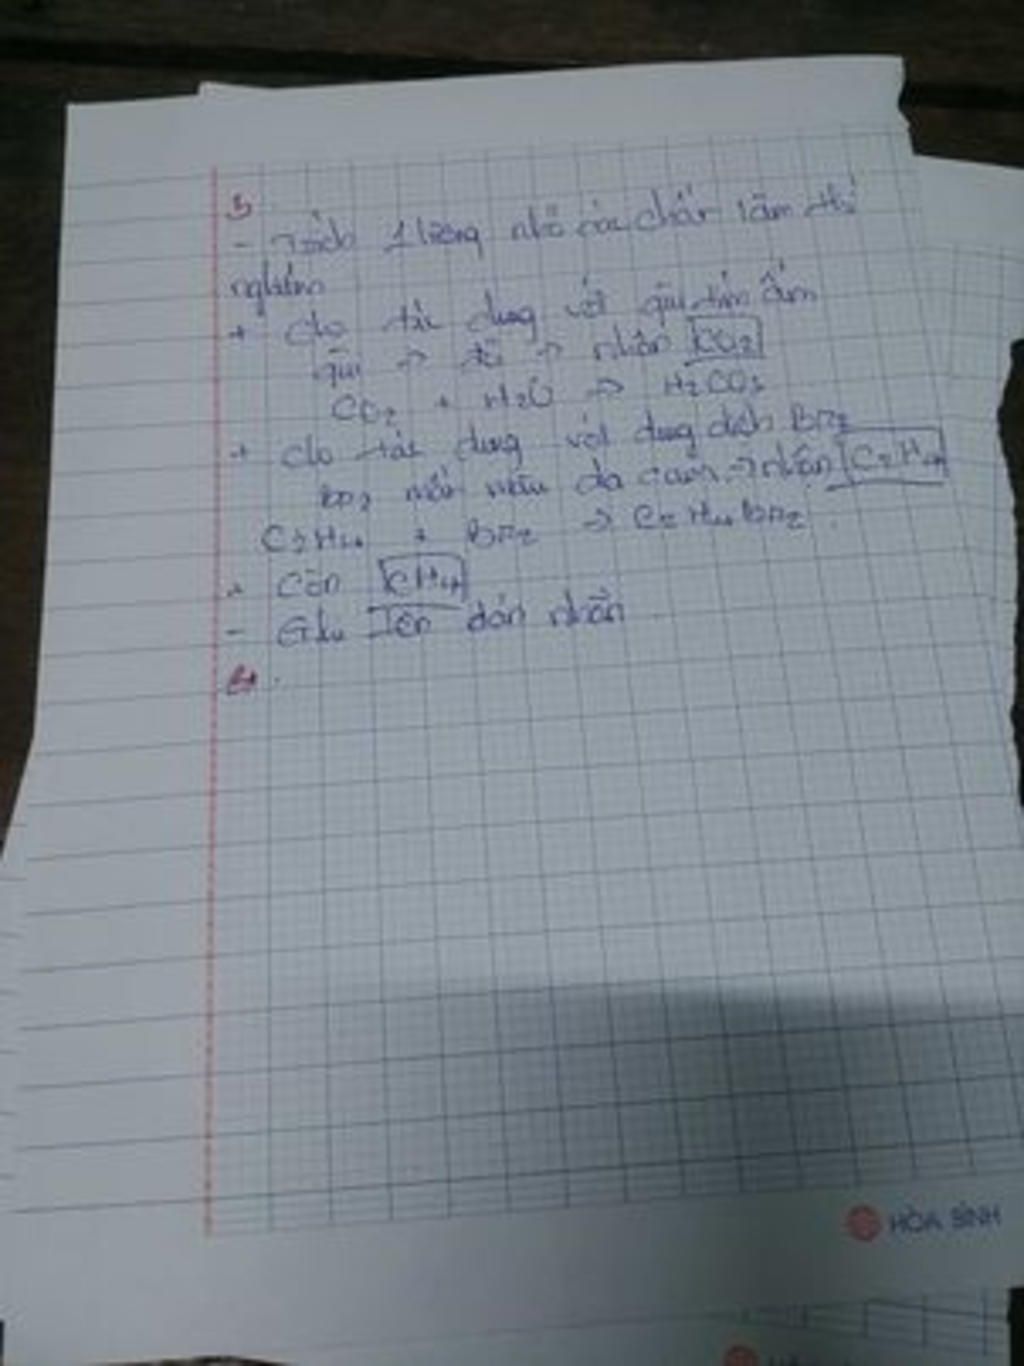 3
- Trích 1 lượng nhỏ các chất làm thí
nghiệm
+ cho tác dụng với quì tím ẩm
quì → đỏ → nhận CO2
CO2 + H2O → H2CO3
+ cho tác dụng với dung dịch Br2
Br2 mất màu da cam → nhận C2H4
C2H4 + Br2 → C2H4Br2
+ Còn CH4
- Ghi Tên dán nhãn
4.
HÒA BÌNH